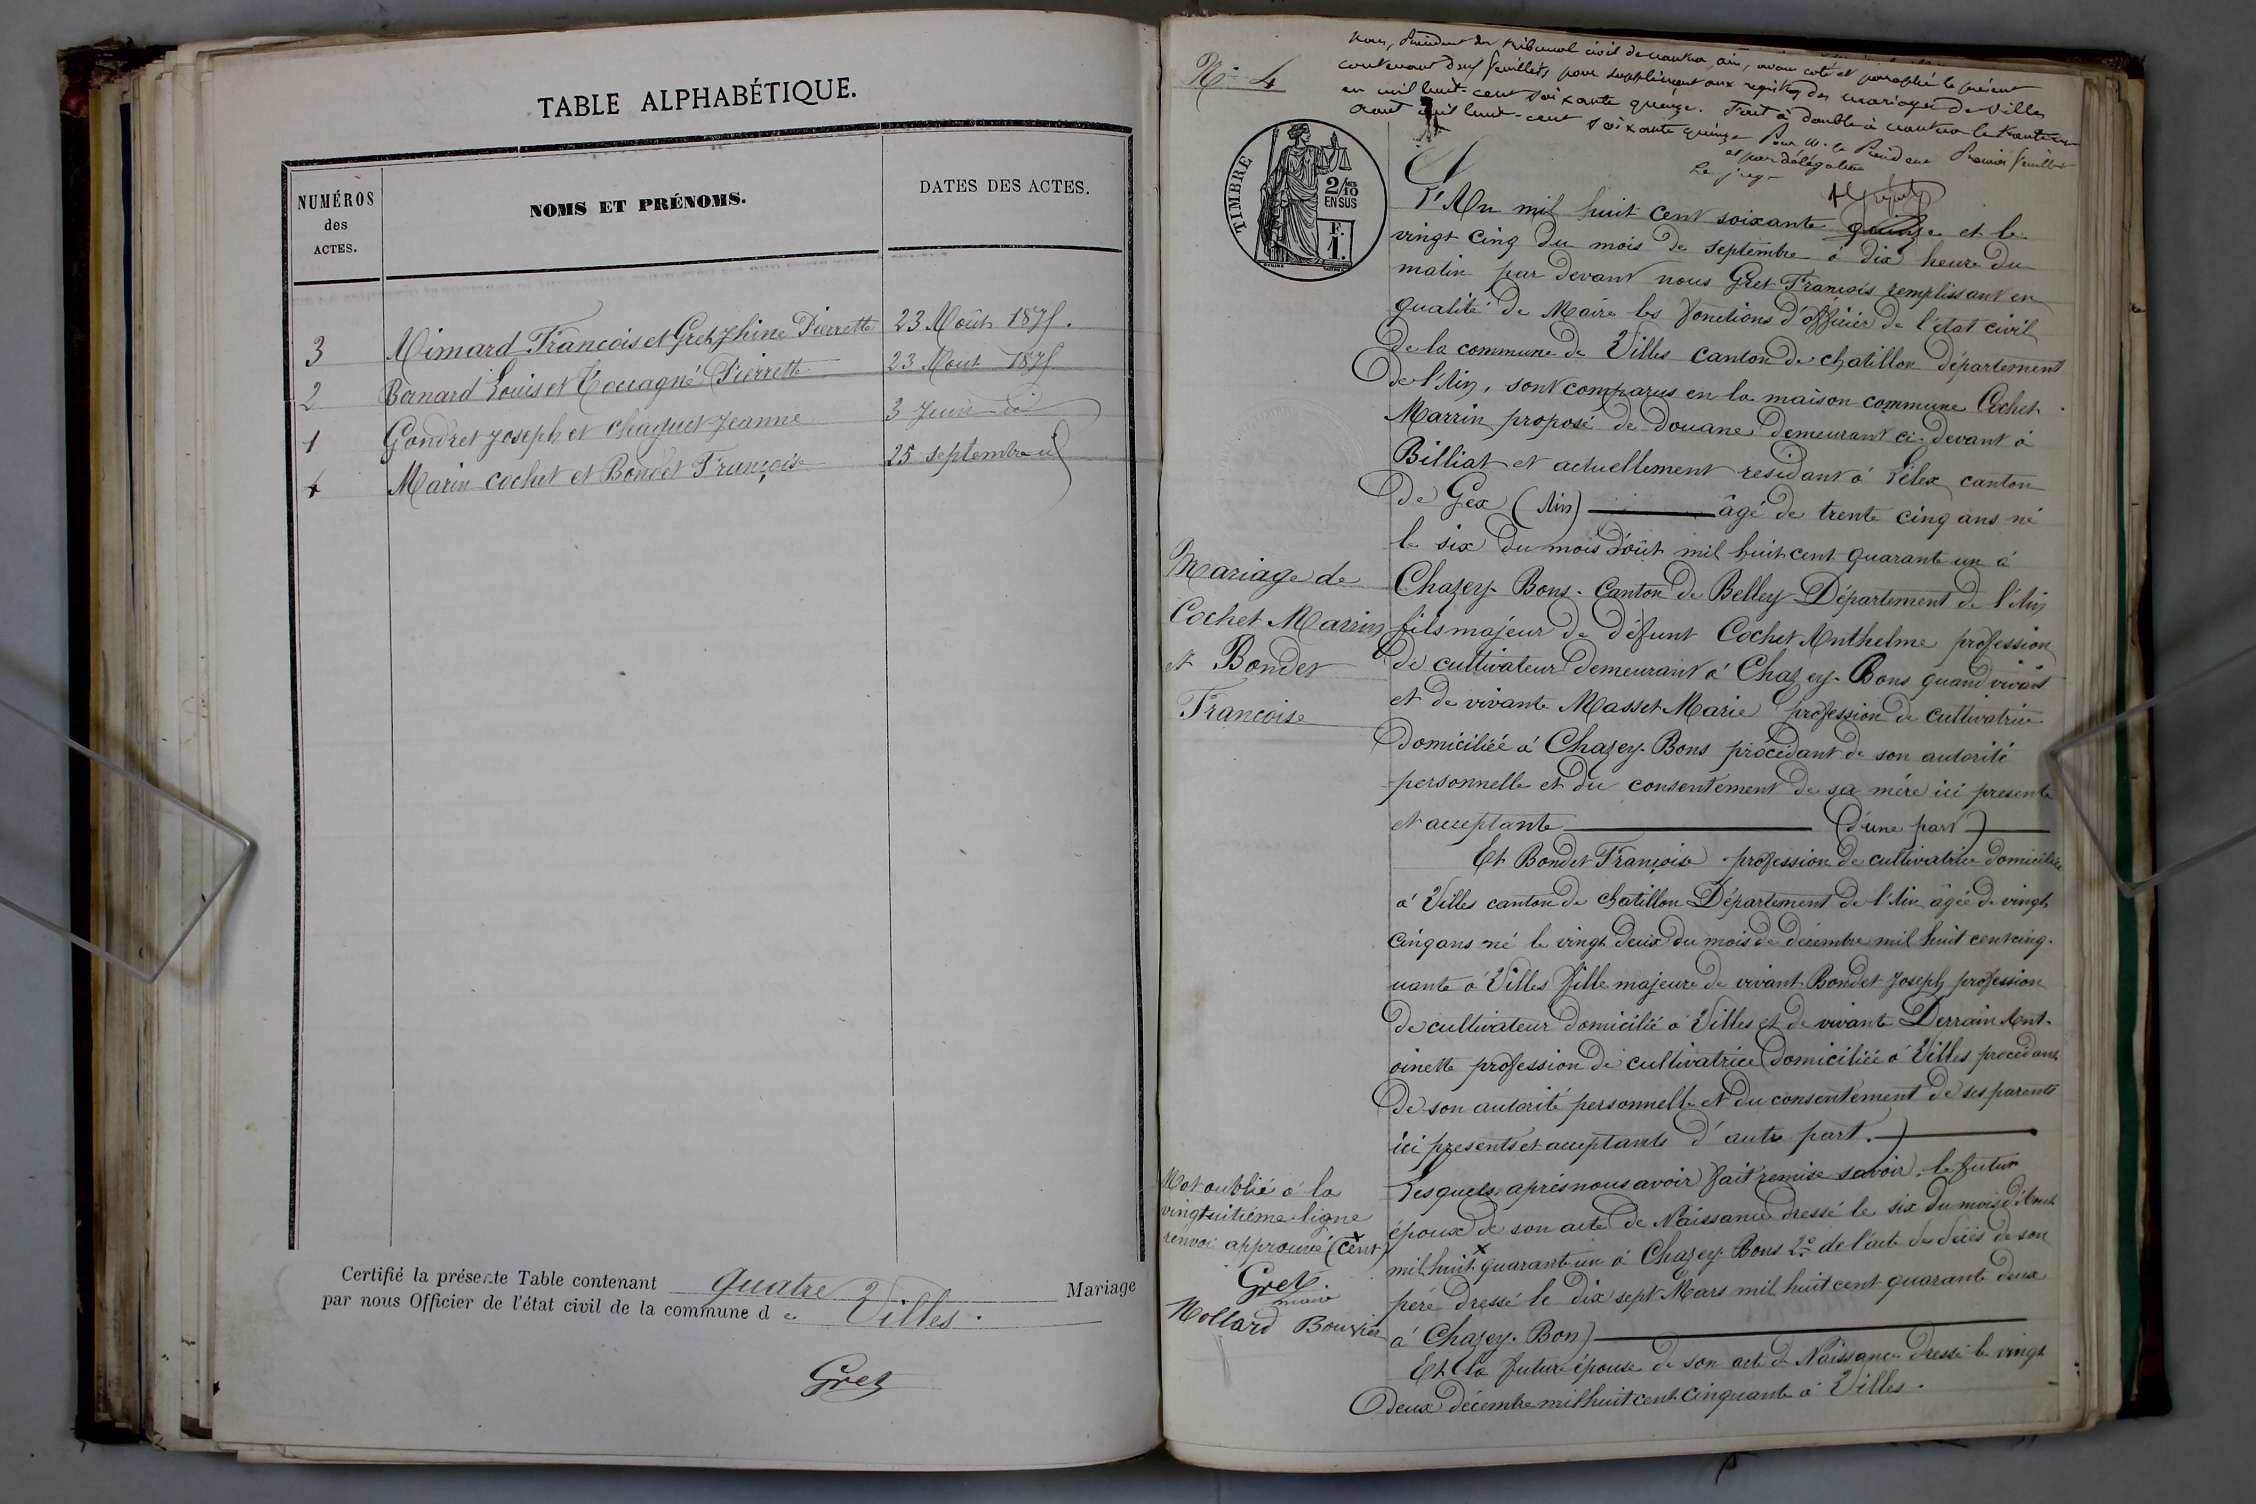 TABLE ALPHABÉTIQUE.
NUMÉROS
des
ACTES.
NOMS ET PRÉNOMS.
DATES DES ACTES.
3 Mimard Francois et Gretz Phine Pierrette 23 Août 1875.
2 Bernard Louis et Coucagné Pierrette 23 Aout 1875
1 Gondret Joseph et Chaquet Jeanne 3 Juin id
4 Marin Cochet et Bondet Françoise 25 septembre id
Certifié la présente Table contenant quatre Mariage
par nous Officier de l'état civil de la commune d e Villes.
Gretz
N° 4
Nous, Président du tribunal civil de nantua, ain, avons coté et paraphé le présent
contenant deux feuillets pour supplément aux registres des mariages de Villes
en mil huit-cent soixante quinze. Fait à double à nantua le trente un
aout mil huit-cent soixante quinze Pour M. le Président Premier feuillet
et par délégation
Le juge
TIMBRE
2/10
EN SUS
F.
1.
L'An mil huit cent soixante quinze et le
vingt cinq du mois de septembre à dix heure du
matin par devant nous Gretz François remplissant en
qualité de Maire les fonctions d'officier de l'état civil
de la commune de Villes canton de chatillon département
de l'Ain, sont comparus en la maison commune Cochet
Marrin proposé de douane demeurant ci-devant à
Billiat et actuellement residant à Lélex canton
de Gex (Ain) âgé de trente cinq ans né
le six du mois d'oût mil huit cent quarante un à
Chazey-Bons-Canton de Belley Département de l'Ain
fils majeur de défunt Cochet Anthelme profession
de cultivateur demeurant à Chazey-Bons quand vivait
et de vivante Masset Marie profession de cultivatrice
domiciliée à Chazey-Bons procédant de son autorité
personnelle et du consentement de sa mère ici presente
et acceptante (d'une part)
Et Bondet Françoise profession de cultivatrice domiciliée
à Villes canton de chatillon Département de l'Ain âgée de vingt
cinq ans né le vingt deux du mois de décembre mil huit cent cinq-
uante à Villes fille majeure de vivant Bondet Joseph profession
de cultivateur domicilié à Villes et de vivante Derrain Ant-
oinette profession de cultivatrice domiciliée à Villes procédant
de son autorité personnelle et du consentement de ses parents
ici presents et acceptants d'autre part.)
Lesquels après nous avoir fait remise savoir, le futur
époux de son acte de Naissance dressé le six du mois d'Aout
mil huit x quarante un à Chazey-Bons 2° de l'acte de décès de son
père dressé le dix sept Mars mil huit cent quarante deux
à Chazey-Bon)
Et la future épouse de son acte de Naissance dressé le vingt
deux décembre mil huit cent cinquante à Villes.
Mariage de
Cochet Marrin
et Bondet
Francoise
Mot oublié à la
vingtuitième ligne
renvoi approuvé (cent)
Gretz.
maire
Mollard Bouvier